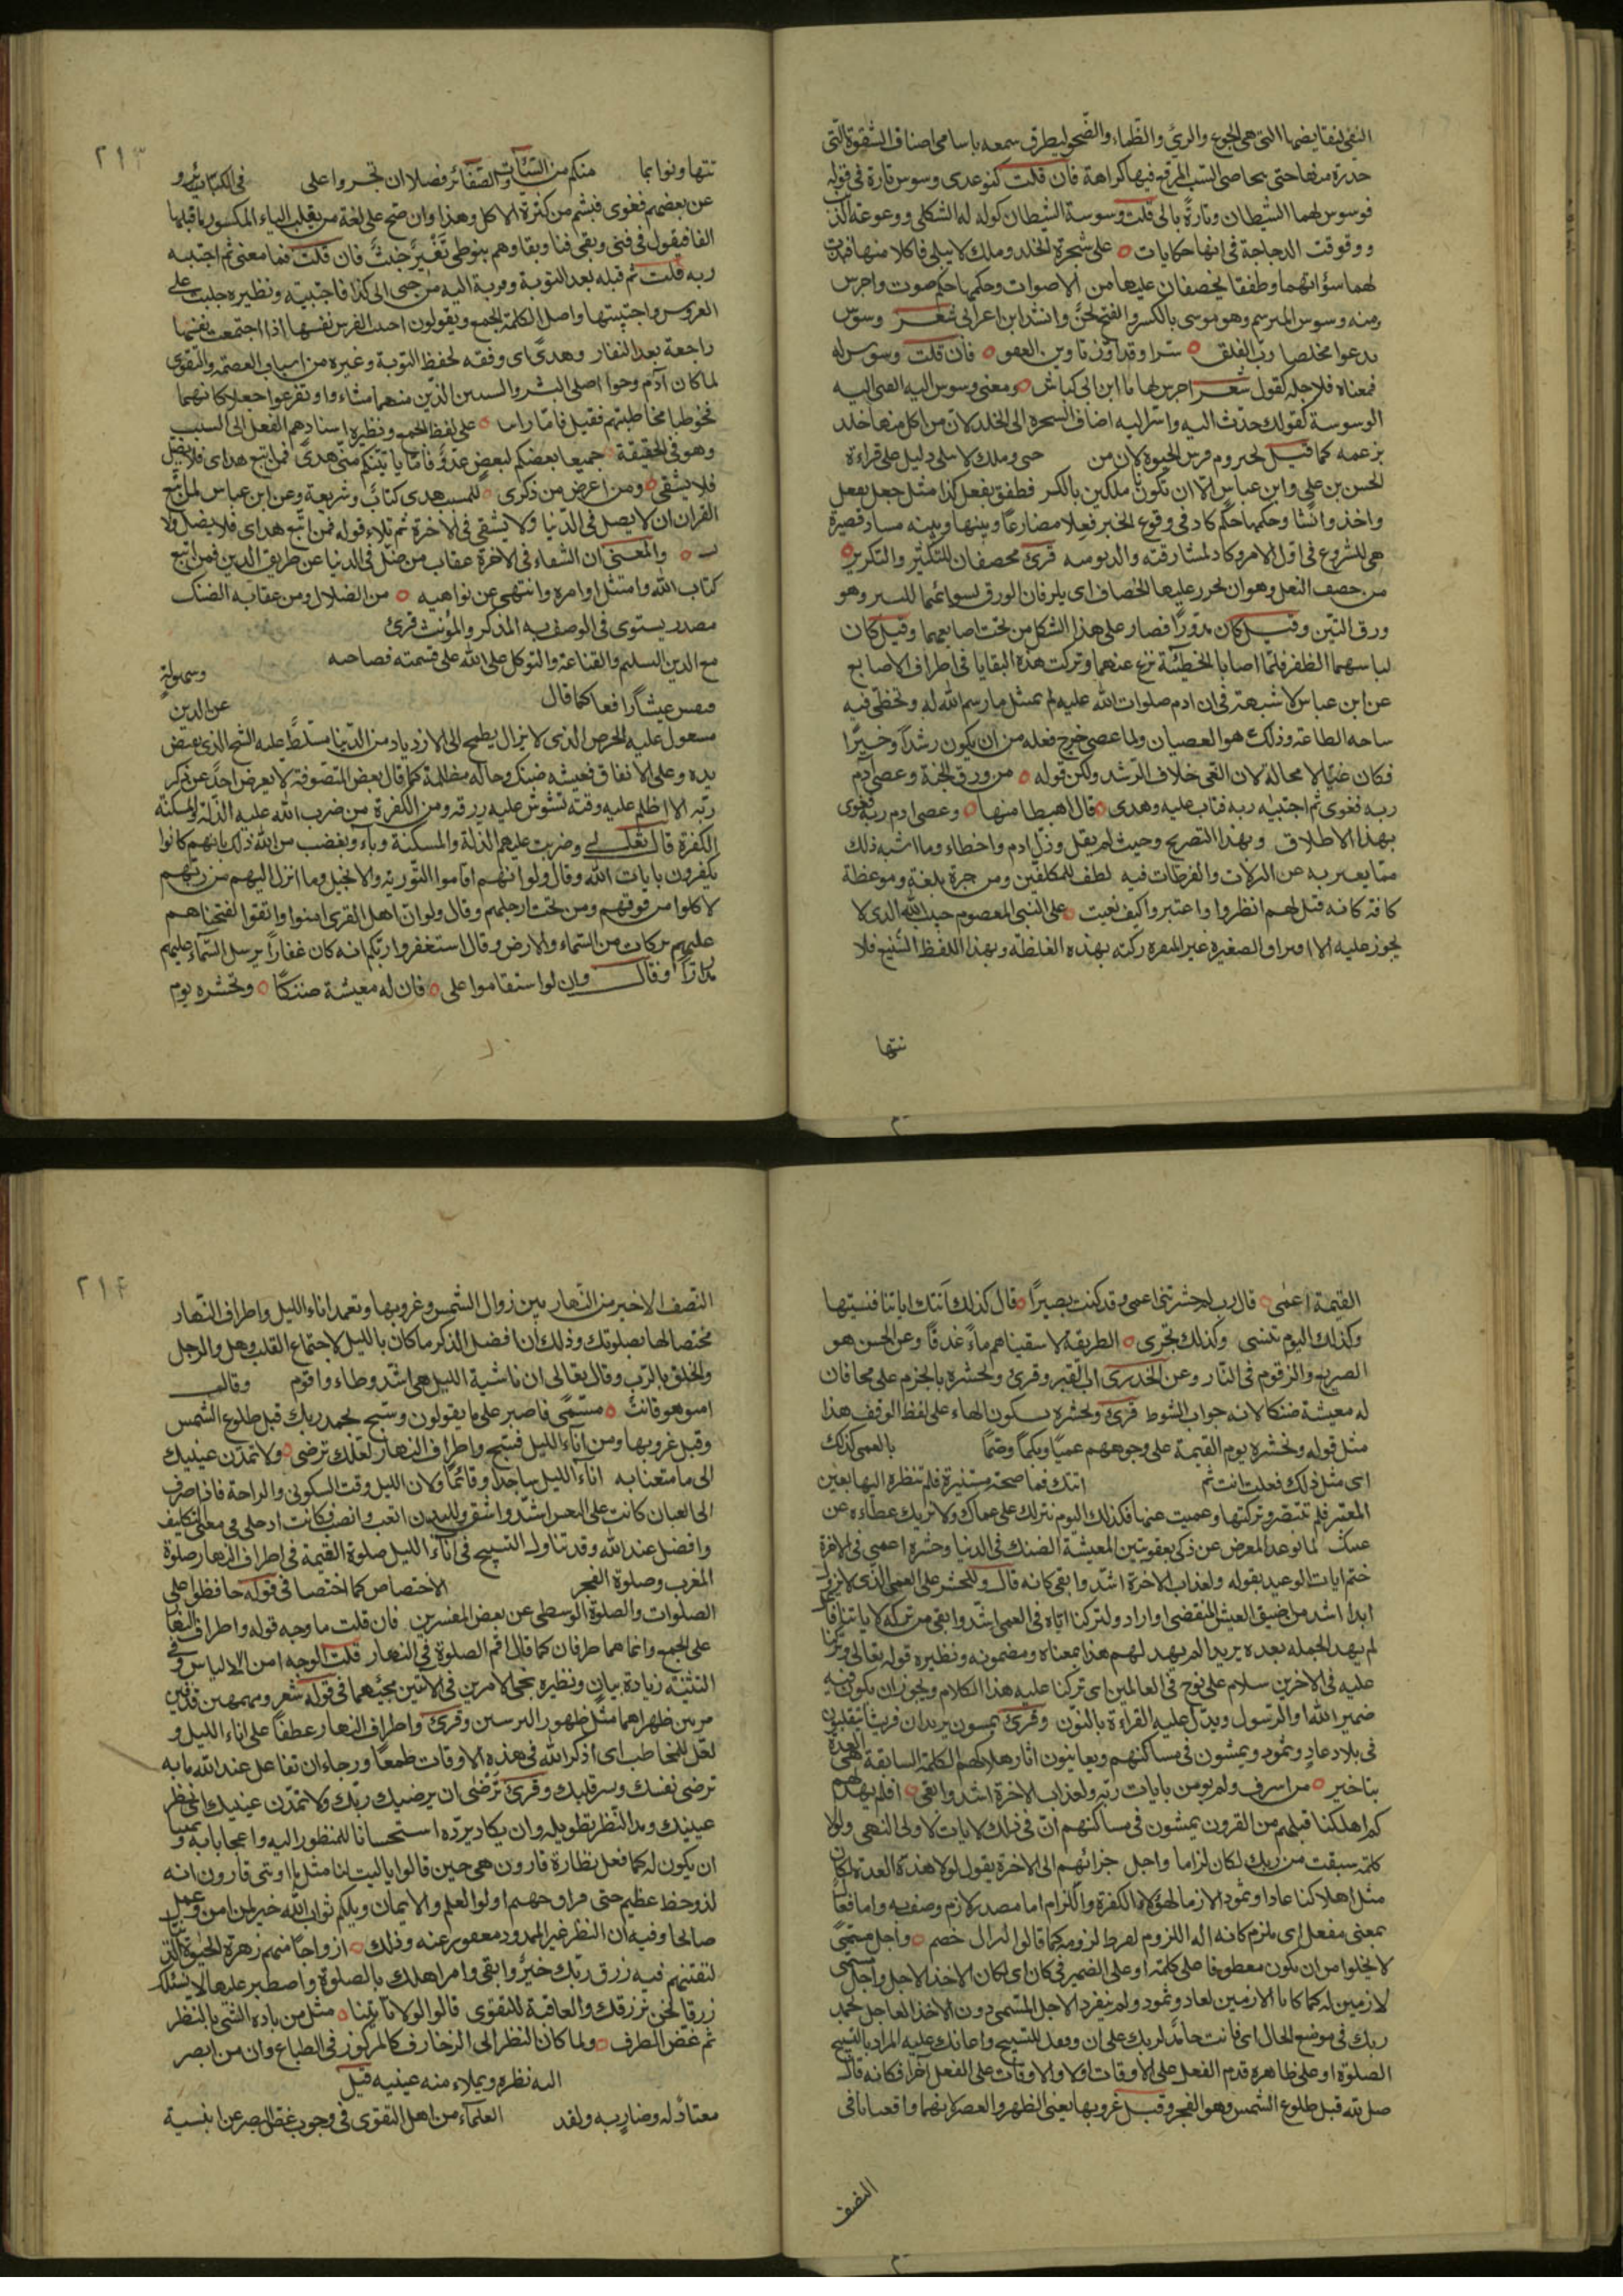 النفي لنقايضها التي هي الجوع والعري والظماء والضحو ليطرق سمعه باسامي اصناف الشقوة التي
حذره منها حتى يتحامى السبب الموقع فيها كراهة فان قلت كيف عدى وسوس تارة في قوله
فوسوس لهما الشيطان وتارةً بالى قلت وسوسة الشيطان كولولة الثكلى ووعوعة الذئب
ووقوقت الدجاجة في انها حكايات على شجرة الخلد وملك لا يبلى فاكلا منها فبدت
لهما سؤاتهما وطفقا يخصفان عليهما من الاصوات وحكمها حكم صوت واجرس
ومنه وسوس المبرسم وهو موسوس بالكسر والفتح لحن وانشد ابن اعرابى شعر وسوس
يدعوا مخلصا ربّ الفلق سّرا وقد اوّن تاوين العقق فان قلت وسوس له
فمعناه فلاجله كقوله شعر اجرس لها يا ابن ابى كباش ومعنى وسوس اليه انهى اليه
الوسوسة كقولك حدّث اليه واسرّ اليه اضاف الشجرة الى الخلد لان من اكل منها خلد
بزعمه كما قيل لحيزوم فرس الحيوة لان من وملك لا يبلى دليل على قراءة
الحسن بن علي وابن عباس الا ان تكونا ملكين بالكسر فطفق يفعل كذا مثل جعل يفعل
واخذ وانشأ وحكمها حكم كاد في وقوع الخبر فعلا مضارعًا وبينها وبينه مسافة قصيرة
هي للشروع في اوّل الامر وكاد لمشارفته والدنو منه قرئ يخصفان للتكثير والتكرير
من خصف النعل وهو ان يخرز عليها الخصاف اى يلزقان الورق بسوآتهما للتستر وهو
ورق التين وقيل كان مدوّرًا فصار على هذا الشكل من تحت اصابعهما وقيل كان
لباسهما الظفر فلمّا اصابا الخطيئة نزع عنهما وتركت هذه البقايا في اطراف الاصابع
عن ابن عباس لا شبهة في ان ادم صلوات الله عليه لم يمتثل ما رسم الله له وتخطى فيه
ساحه الطاعة وذلك هو العصيان ولما عصى خرج فعله من ان يكون رشدًا وخيرًا
فكان غيًّا لا محالة لان الغى خلاف الرشد ولكن قوله من ورق الجنة وعصى آدم
ربه فغوى ثم اجتبيه ربه فتاب عليه وهدى قال اهبطا منها وعصى ادم ربه فغوى
بهذا الاطلاق وبهذا التصريح وحيث لم يقل وزلّ ادم واخطاء وما اشبه ذلك
ممّا يعبر به عن الزلات والفرطات فيه لطف للمكلفين ومزجرة بليغة وموعظة
كافة كانه قيل لهم انظروا واعتبروا كيف نعيت على النبي المعصوم حبيب الله الذى لا
يجوز عليه الا اقتراف الصغيرة غير المنفرة زلته بهذه الغلظة وبهذا اللفظ الشنيع فلا
تتها
٢١٣
تتهاونوا بما منكم من السيّأت والصغائر فضلا ان تجسروا على في الكبائر و
عن بعضهم فغوى فبشم من كثرة الاكل وهذا وان صح على لغة من يقلب الياء المكسور ما قبلها
الفا فيقول في فنى وبقى فنا وبقا وهم بنو طى تفسير خبيث فان قلت فما معنى ثم اجتبيه
ربه قلت ثم قبله بعد التوبة وقربة اليه من جبى الى كذا فاجتبيته ونظيره جليت على
العروس واجتليتها واصل الكلمة الجمع ويقولون اجتبت الفرس نفسها اذا اجتمعت نفسها
راجعة بعد النفار وهدى اى وفقه لحفظ التوبة وغيره من اسباب العصمة والتقوى
لما كان آدم وحوا اصلى البشر والسببين الذين منهما نشاءوا وتفرعوا جعلا كانهما
فخوطبا مخاطبتهم فقيل فامّا على لفظ الجمع ونظيره اسنادهم الفعل الى السبب
وهو في الحقيقة جميعا بعضكم لبعضٍ عدوٌّ فامّا ياتينّكم منّى هدىً فمن اتبع هداى فلا يضل
فلا يشقى ومن اعرض من ذكرى للمسبب هدى كتاب وشريعة وعن ابن عباس لمن اتبع
القران ان لا يضل في الدنيا ولا يشقى في الآخرة ثم تلاء قوله فمن اتّبع هداى فلا يضل ولا
والمعنى ان الشقاء في الاخرة عقاب من ضلّ في الدنيا عن طريق الدين فمن اتبع
كتاب الله وامتثل اوامره وانتهى عن نواهيه من الضلال ومن عقابه الضنك
مصدر يستوى في الوصف به المذكر والمؤنث قرئ
مع الدين التسليم والقناعة والتوكل على الله على قسمته فصاحبه وسهولة
فيعيش عيشًا رافعا كما قال عن الدين
مستول عليه الحرص الذى لا يزال يطمح الى الازدياد من الدنيا مسلّط عليه الشح الذى يقبض
يده وعلى الانفاق فعيشه ضنك وحاله مظلمة كما قال بعض المتصوفة لا يعرض احد عن ذكر
ربّه الا اظلم عليه وقته تشوش عليه رزقه ومن الكفرة من ضرب الله عليه الذلة والمسكنة
الكفرة قال تعالى وضربت عليهم الذلة والمسكنة وباءو بغضب من الله ذلك بانهم كانوا
يكفرون بايات الله وقال ولو انهم اقاموا التورية والانجيل وما انزل اليهم من ربّهم
لاكلوا من فوقهم ومن تحت ارجلهم وقال ولو ان اهل القرى امنوا واتقوا لفتحنا هم
عليهم بركات من السّماء والارض وقال استغفروا ربّكم انه كان غفارًا يرسل السّماء عليهم
مدرارًا وقال وان لو استقاموا على فان له معيشة ضنكًا ونحشره يوم
القيمة اعمٰى قال رب لم حشرتنى اعمى وقد كنت بصيرًا قال كذلك اتتك اياتنا فنسيتها
وكذلك اليوم تنسى وكذلك نجزى الطريقة لاسقيناهم ماءً غدقًا وعن الحسن هو
الضريع والزقوم في النّار وعن الخدرى عذاب القبر وقرئ ونحشره بالجزم على محل فان
له معيشة ضنكا لانه جواب الشرط قرئ ونحشره بسكون الهاء على لفظ الوقف هذا
مثل قوله ونحشره يوم القيمة على وجوههم عميًا وبكمًا وصمًّا بالعمى كذلك
اى مثل ذلك فعلت انت ثم اتتك فما صحة مستنيرة فلم تنظره اليها بعين
المعتبر فلم تتبصر وتركتها وعميت عنها فكذلك اليوم نتركك على عماك ولا نزيل عطاءه عن
عينيك لمّا توعد المعرض عن ذكرى بعقوبتين المعيشة الضنك في الدنيا وحشره اعمى في الاخرة
ختم ايات الوعيد بقوله ولعذاب الاخرة اشدّ وابقى كانه قال وللحشر على العمى الذى لا يزول
ابدا اشد من ضيق العيش المنقضى او اراد ولتركنا ايّاه في العمى اشدّ وابقى من تركه لاياتنا فا
لم يهد الجمله بعده يريد الم يهد لهم هذا بمعناه ومضمونه ونظيره قوله تعالى وتركنا
عليه في الاخرين سلام على نوح في العالمين اى تركنا عليه هذا الكلام ويجوز ان يكون فيه
ضمير الله او الرّسول ويدلّ عليه القراءة بالنّون وقرئ يمشون يريد ان قريشا يتقلبون
في بلاد عادٍ وثمود ويمشون في مساكنهم ويعاينون اثار هلاكهم الكلمة السابقة هى العدة
بتاخير من اسرف ولم يومن بايات ربّه ولعذاب الاخرة اشد وابقى افلم يهد لهم
كم اهلكنا قبلهم من القرون يمشون في مساكنهم انّ في ذلك لايات لاولى النهى ولولا
كلمة سبقت من ربك لكان لزاما واجل جزائهم الى الاخرة يقول لولا هذه العدة لكان
مثل اهلاكنا عادا وثمود لازما لهؤلاء الكفرة واللزام اما مصدر لازم وصف به واما فعال
بمعنى مفعل اى ملزم كانه اله اللزوم لفرط لزومه كما قالوا لزاز خصم واجل مسمّى
لا يخلوا من ان يكون معطوفا على كلمة او على الضمير في كان اى لكان الاخذ الاجل واجل مسمى
لازمين له كما كانا لازمين لعاد وثمود ولم ينفرد الاجل المسمى دون الاخذ العاجل بحمد
ربك في موضع الحال اى فانت حامد لربك على ان وفقك للتسبيح واعانك عليه المراد بالتسبيح
الصلوة او على ظاهره قدم الفعل على الاوقات اولا والاوقات على الفعل آخرا فكانه قال
صلّ لله قبل طلوع الشمس وهو الفجر وقبل غروبها يعنى الظهر والعصر لانهما واقعتان في
النصف
٢١٤
النّصف الاخير من النّهار بين زوال الشمس وغروبها وتعمد اناء الليل واطراف النّهار
مختصا لها بصلوتك وذلك ان افضل الذكر ما كان بالليل لاجتماع القلب وهدو الرجل
والخلو بالرّب وقال تعالى ان ناشية الليل هى اشدّ وطاء واقوم وقال
امن هو قانت مسمًّى فاصبر على ما يقولون وسبّح بحمد ربك قبل طلوع الشمس
وقبل غروبها ومن آناء الليل فسبح واطراف النهار لعلّك ترضى ولا تمدّن عينيك
الى ما متعنا به اناء الليل ساجدًا وقائمًا ولان الليل وقت السكون والراحة فاذا صرف
الى العبادة كانت على النفس اشدّ واشق وللبدن اتعب وانصب فكانت ادخل في معنى التكليف
وافضل عند الله وقد تناول التسبيح في آناء الليل صلوة العتمة في اطراف النهار صلوة
المغرب وصلوة الفجر الاختصاص كما اختصا في قوله حافظوا على
الصلوات والصلوة الوسطى عن بعض المفسرين فان قلت ما وجه قوله واطراف النهار
على الجمع وانما هما طرفان كما قال اقم الصلوة في النهار قلت الوجه امن الالباس و في
التثنية زيادة بيان ونظيره مجئ الامرين في الايتين مجيئهما في قوله شعر ومهمهين قذفين
مرتين ظهراهما مثل ظهور الترسين وقرئ واطراف النهار عطفا على اناء الليل و
لعل للمخاطب اى اذكر الله في هذه الاوقات طمعًا ورجاء ان تنال عند الله ما به
ترضى نفسك ويسر قلبك وقرئ تُرْضى اى يرضيك ربّك ولا تمدّن عينيك اى نظر
عينيك ومد النظر تطويله وان يكاد يردّه استحسانا للمنظور اليه واعجابا به و تمنيا
ان يكون له كما فعل نظارة قارون هى حين قالوا يا ليت لنا مثل ما اوتى قارون انه
لذو حظ عظيم حتى واجههم اولوا العلم والايمان ويلكم ثواب الله خير لمن امن وعمل
صالحا وفيه ان النظر غير الممدود معفو عنه وذلك ازواجًا منهم زهرة الحيوة الدنيا
لنفتنهم فيه ورزق ربّك خيرٌ وابقى وامر اهلك بالصلوة واصطبر عليها لا نسئلك
رزقا نحن نرزقك والعاقبة للتقوى قالوا لولا ياتينا مثل من باده الشئ بالنظر
ثم غض الطرف ولما كان النظر الى الزخارف كالمركوز في الطباع وان من ابصر
اليه نظره ويملاء منه عينيه قيل
معتادٌ له وضارٍ به ولقد العلماء من اهل التقوى في وجوب غض البصر عن ابنية